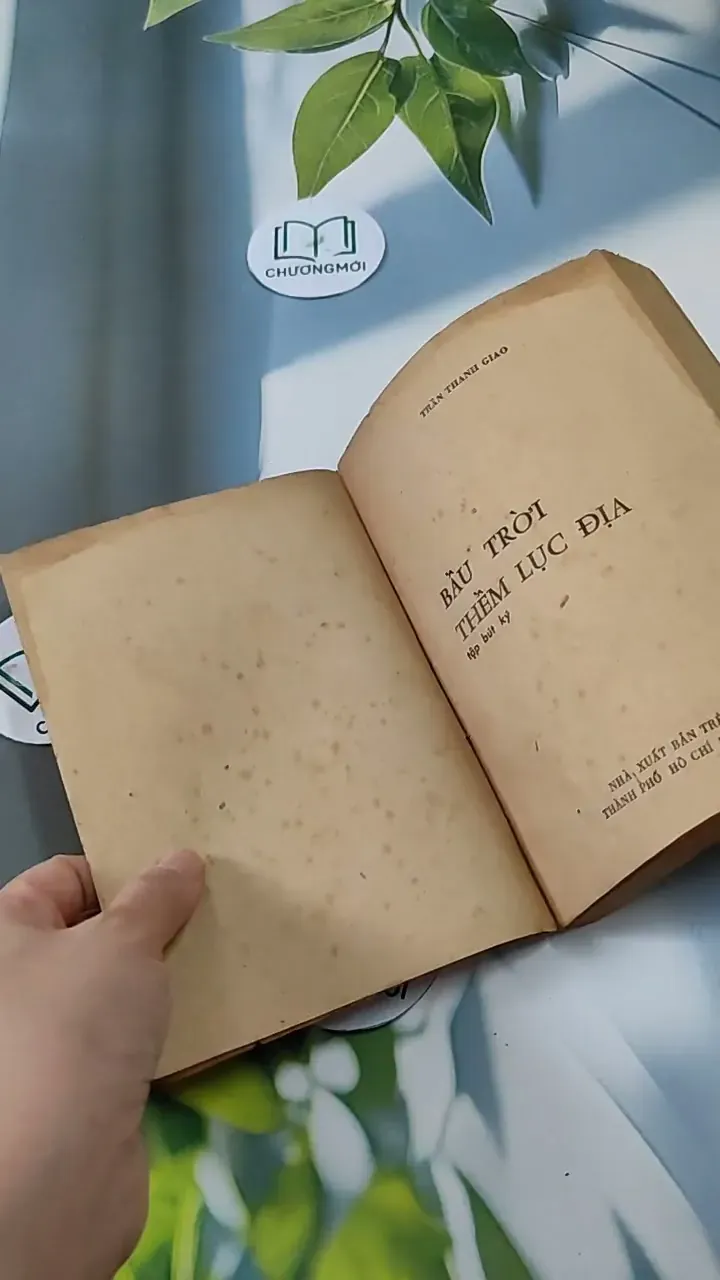 CHƯƠNGMỚI
TRẦN THANH GIAO
BẦU TRỜI
THỀM LỤC ĐỊA
tập bút ký
NHÀ XUẤT BẢN TRẺ
THÀNH PHỐ HỒ CHÍ